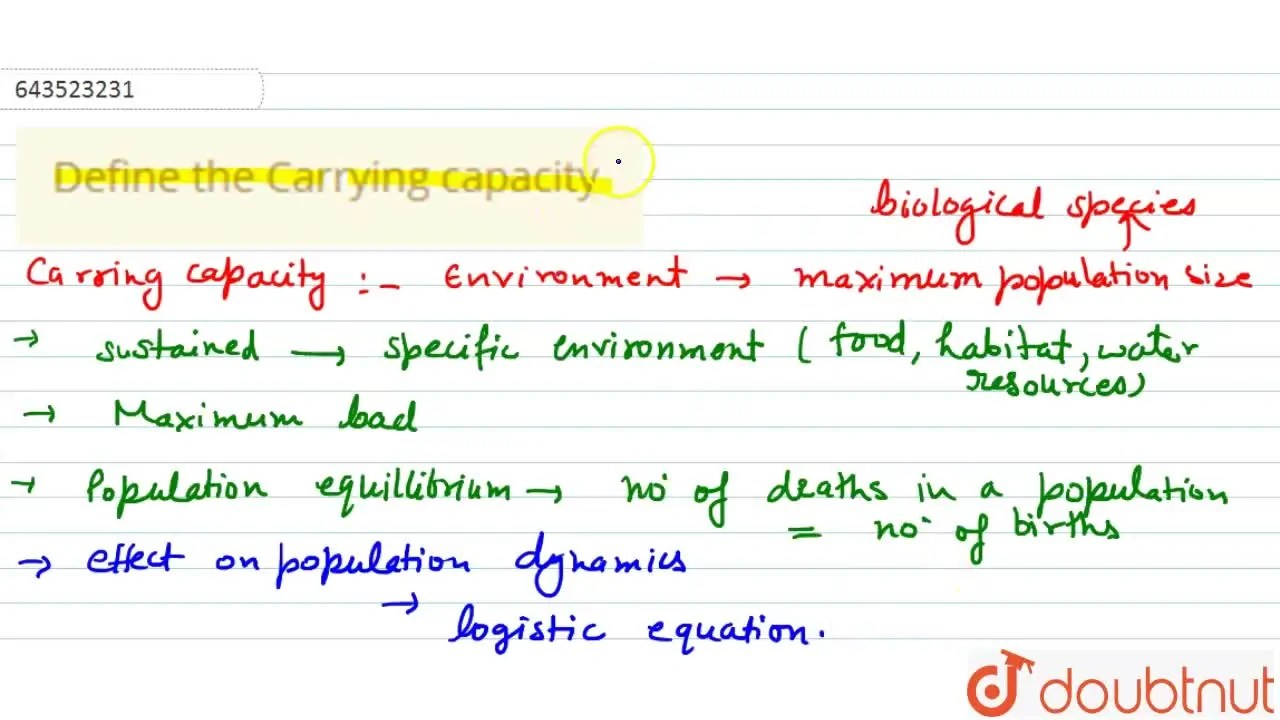 643523231
Define the Carrying capacity
biological species
Carring capacity :- Environment → maximum population size
→ sustained → specific environment ( food, habitat, water
resources)
→ Maximum load
→ Population equillibrium → no. of deaths in a population
= no. of births
→ effect on population dynamics
→ logistic equation.
doubtnut